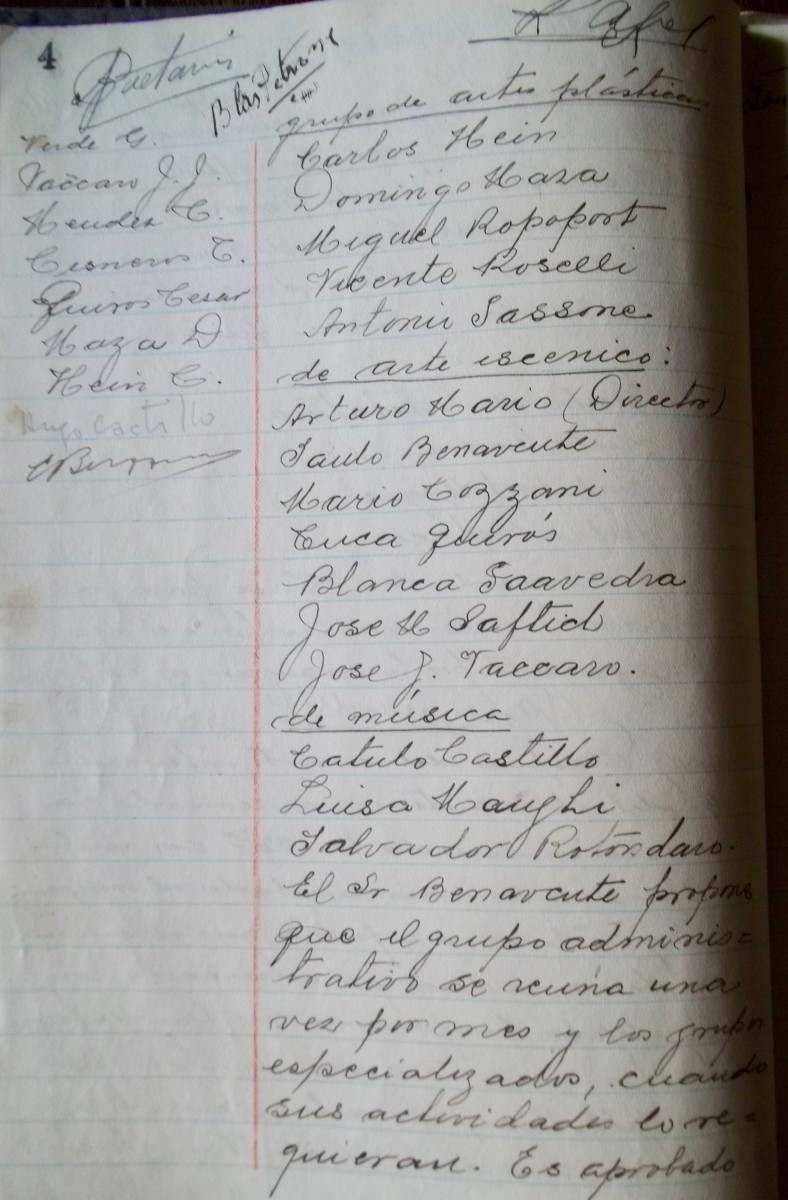 4
Blas Petrone
Verde G.
Vaccaro J. J.
Mendez C.
Cisneros C.
Quiros Cesar
Maza D
Hein C.
Hugo Castillo
grupo de artes plásticas
Carlos Hein
Domingo Maza
Miguel Ropoport
Vicente Roselli
Antonio Sassone
de arte escenico:
Arturo Mario (Director)
Saulo Benavente
Mario Cozzani
Cuca Quirós
Blanca Saavedra
Jose M Saftich
Jose J. Vaccaro.
de música
Catulo Castillo
Luisa Maughi
Salvador Rotondaro.
El Sr Benavente propone
que el grupo adminis=
trativo se reuna una
vez por mes y los grupos
especializados, cuando
sus actividades lo re=
quieran. Es aprobado